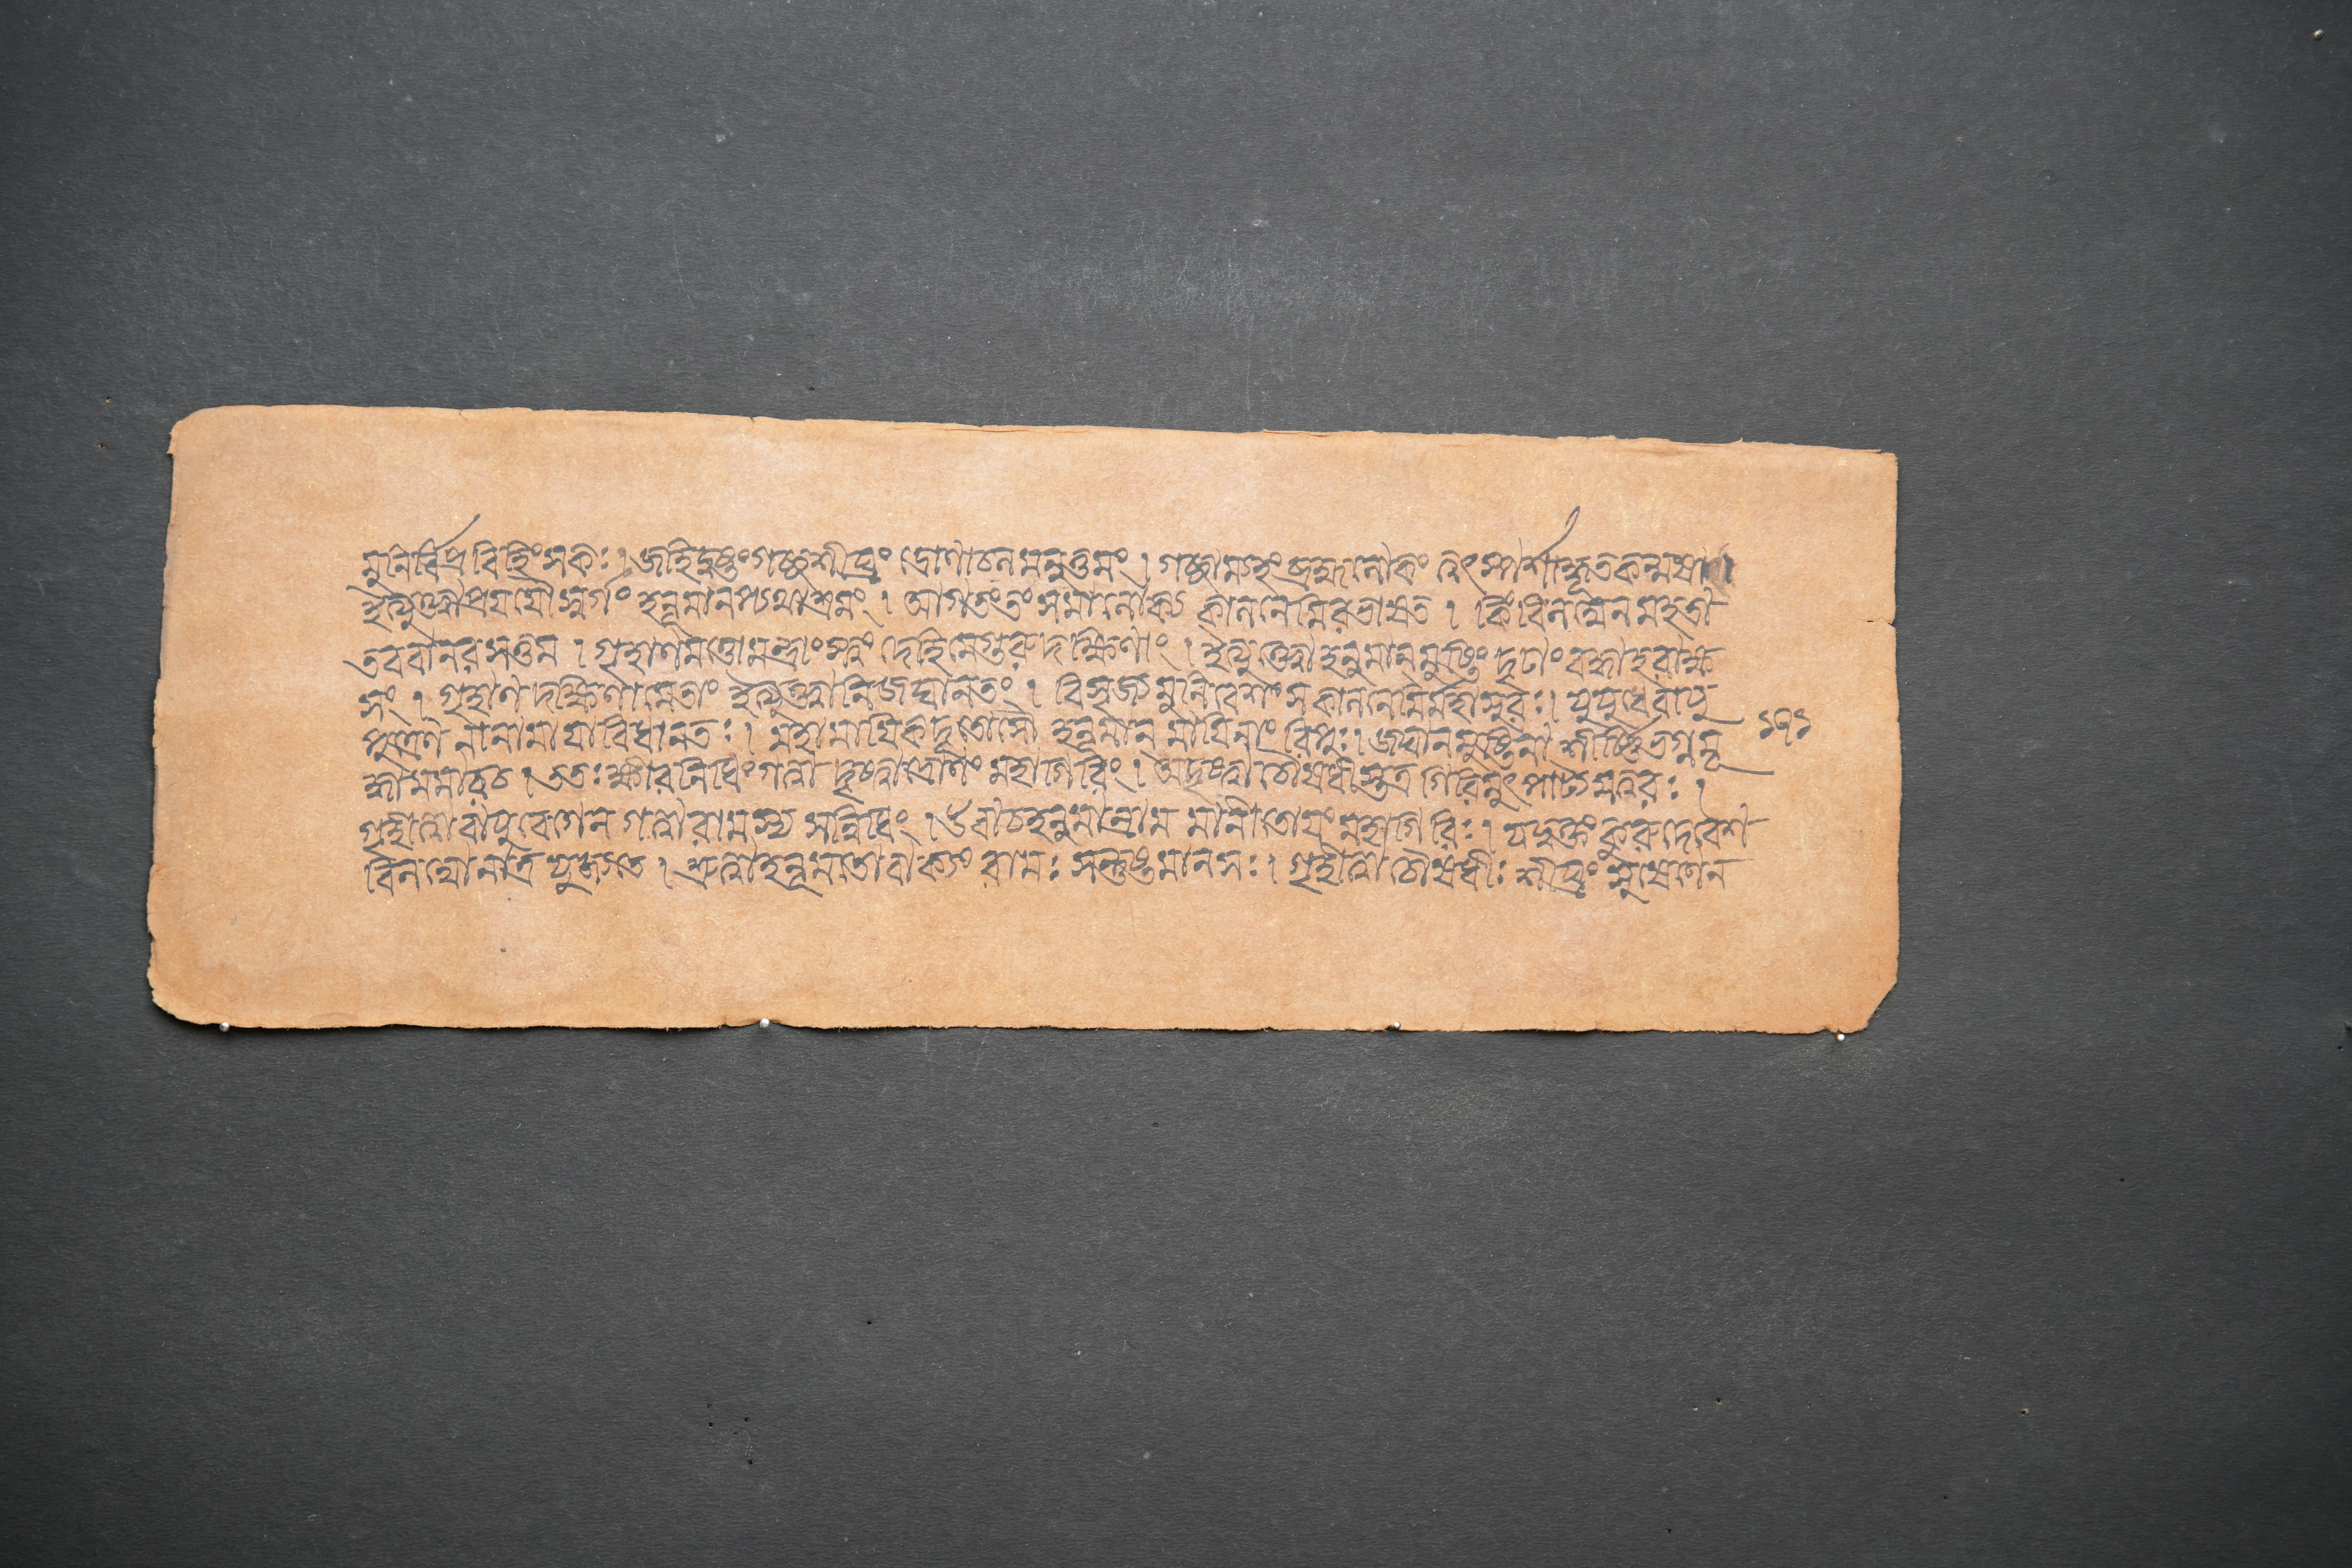 মুনির্বিপ্রবিহিংসকঃ । জহিদুষ্টংগচ্ছশীঘ্রং দ্রোণাচলমনুত্তমং । গচ্ছাম্যহংব্রহ্মলোকং ত্বৎস্পর্শাদ্ধূতকল্মষা
ইত্যুক্ত্বাপ্রযযৌস্বর্গং হনূমানপ্যথাশ্রমং । আগতংতং সমালোক্য কালনেমিরভাষত । কিং বিলম্বেন মহতা
তববানরসত্তম । গৃহাণমত্তোমন্ত্রাংস্ত্বং দেহিমেগুরুদক্ষিণাং । ইত্যুক্ত্বাহনুমানমুষ্টিং দৃঢাং বদ্ধাহরাক্ষ
সং । গৃহাণ দক্ষিণামেতাং ইত্যুক্ত্বানিজঘানতং । বিসৃজ্যমুনিবেশং সকালনেমির্মহাসুরঃ । যুযুধেবাযু
পুত্রেণ নানামাযাবিধানতঃ । মহামাযিকদূতোসৌ হনূমান মাযিনাং রিপুঃ । জঘানমুষ্টিনা শীর্ষ্ণিতগ্নমূ ১৭১
র্দ্ধামমারচ । ততঃক্ষীরনিধিংগত্বা দৃষ্ট্বাদ্রোণং মহাগিরিং । অদৃষ্ট্বাচৌষধীস্তত্র গিরিমুৎপাট্যসত্বরঃ ।
গৃহীত্বাবাযুবেগেন গত্বারামস্য সন্নিধিং । উবাচহনুমান্রাম মানীতোযং মহাগিরিঃ । যদ্যুক্তং কুরুদেবেশ
বিলম্বোনাত্র যুজ্যতে । শ্রুত্বাহনূমতোবাক্যং রামঃ সন্তুষ্টমানসঃ । গৃহীত্বাচৌষধীঃ শীঘ্রং সুষেণেন